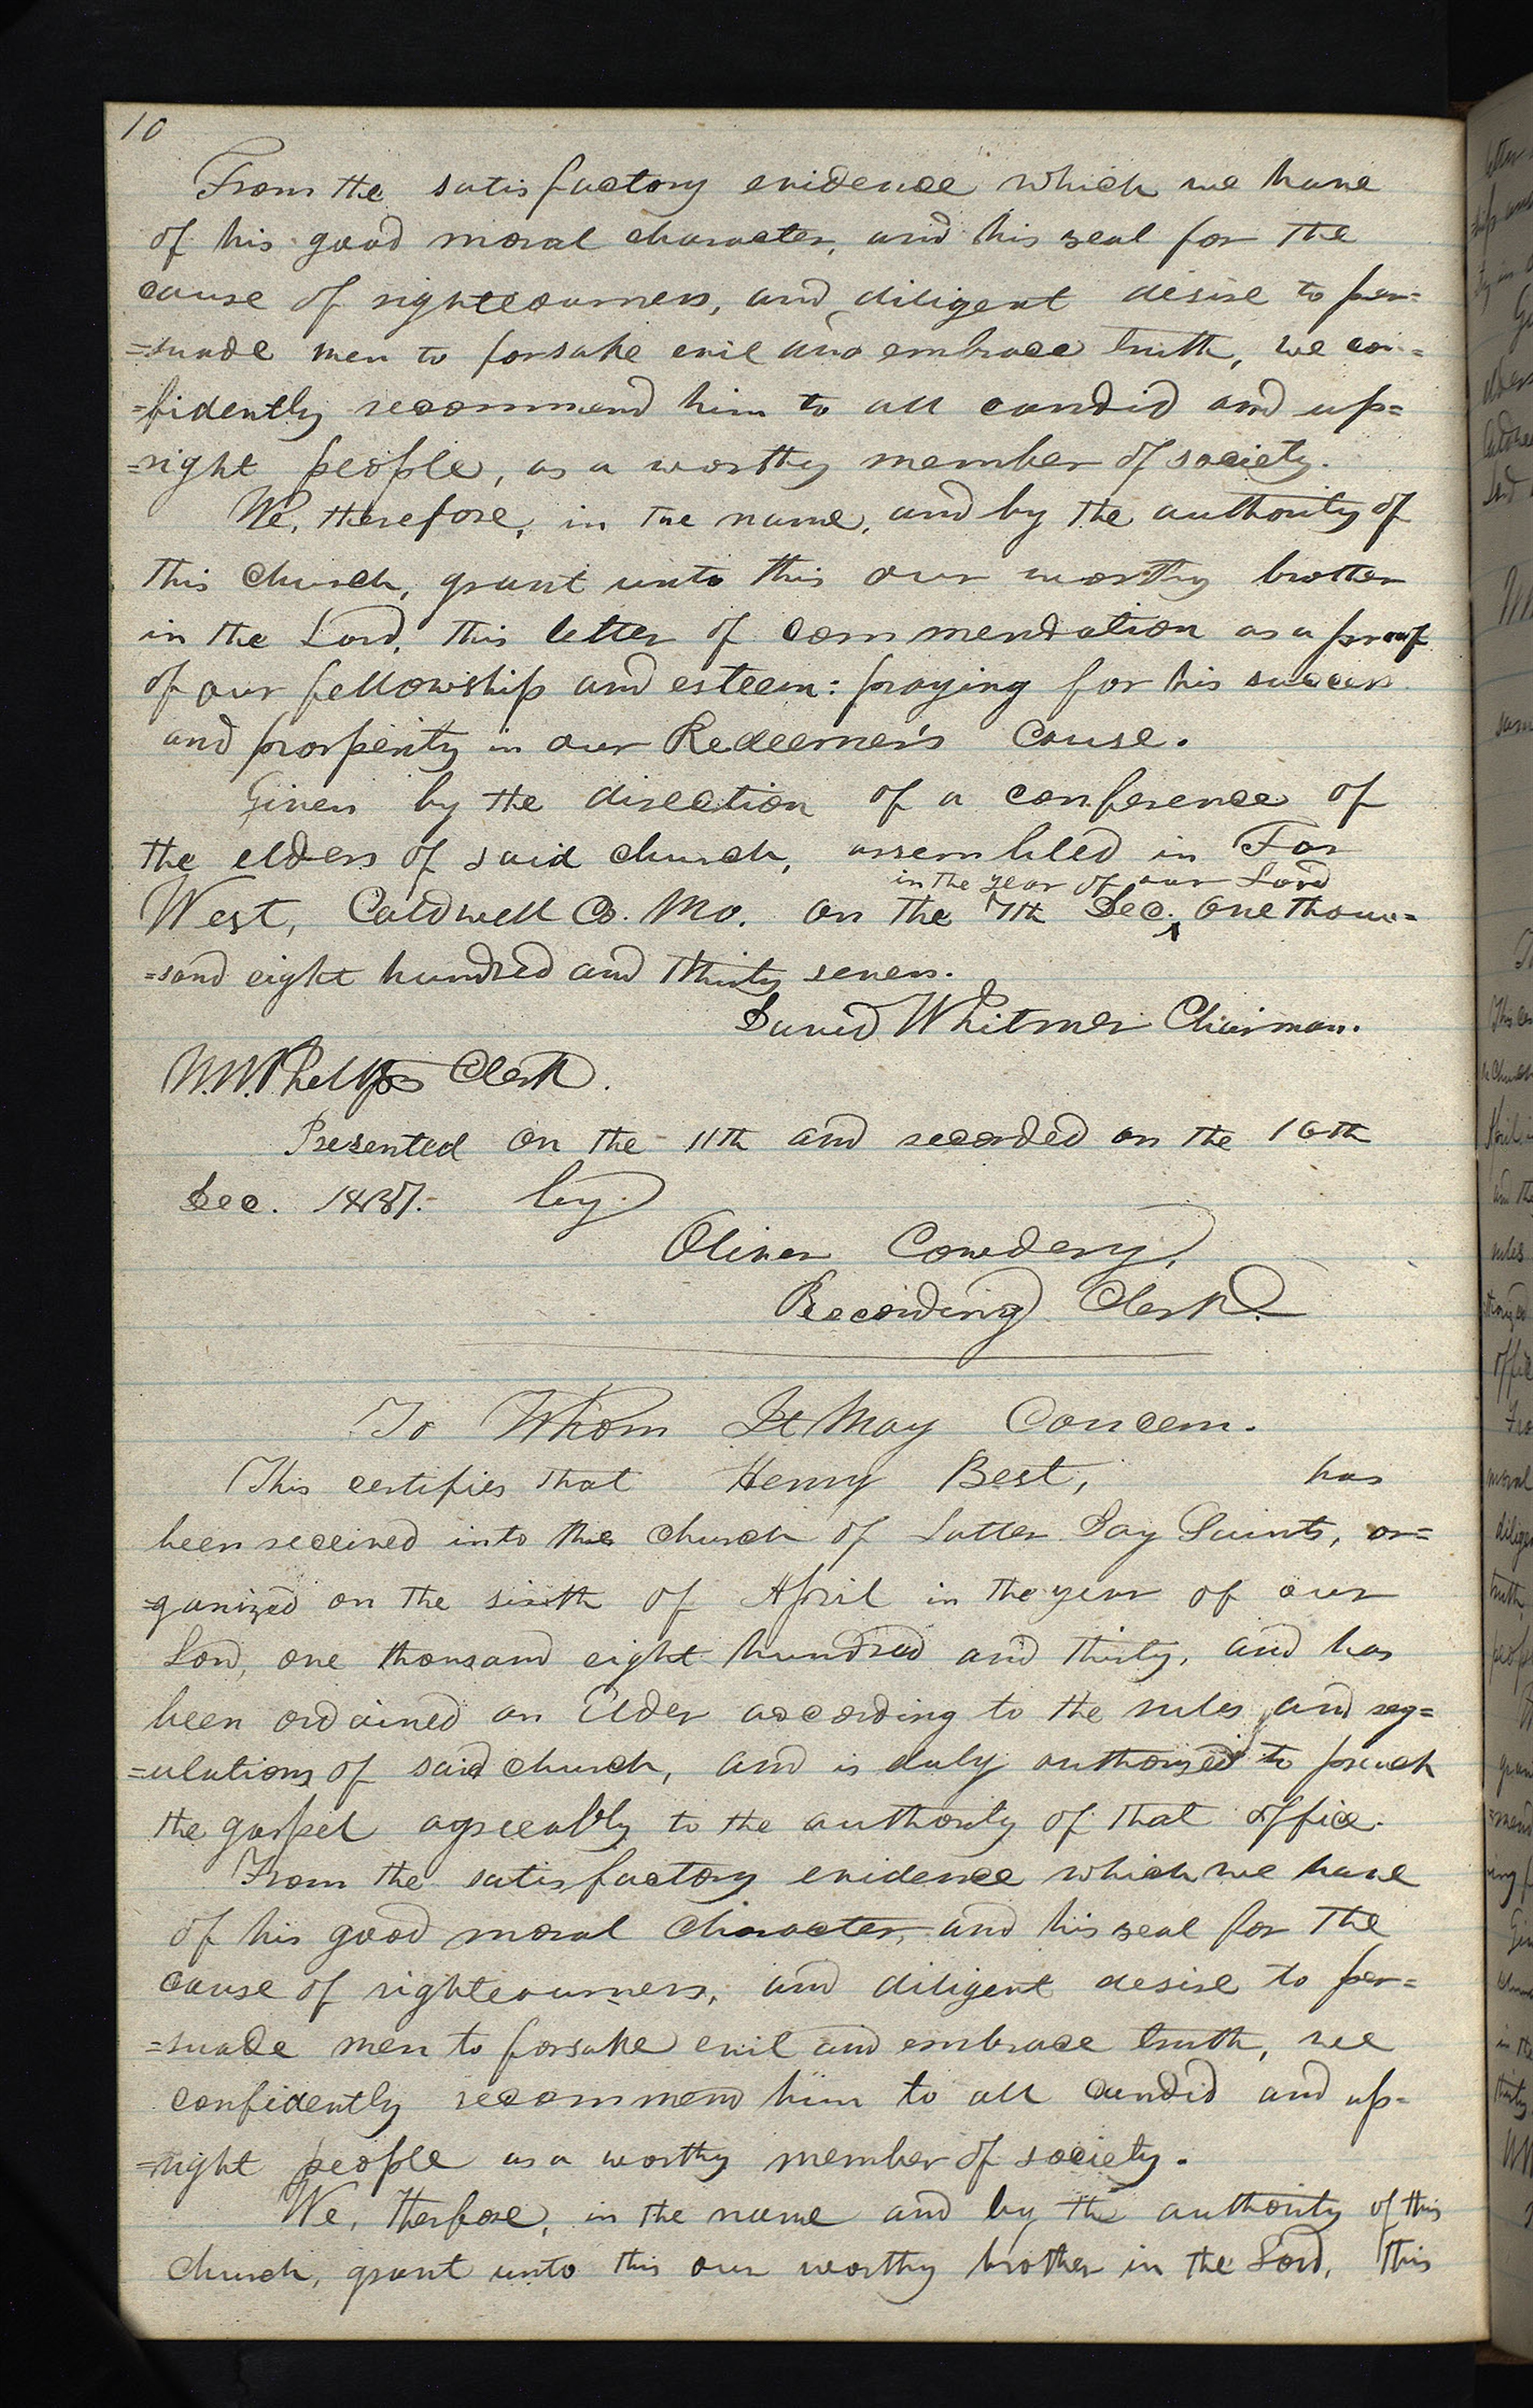 10
From the satisfactory evidence which we have
of his good moral character, and his zeal for the
cause of righteousness, and diligent desire to per=
=suade men to forsake evil and embrace truth, we con=
=fidently recommend him to all candid and up=
=right people, as a worthy member of society.
We, therefore, in the name, and by the authority of
this church, grant unto this our worthy brother
in the Lord, this letter of commendation as a proof
of our fellowship and esteem: praying for his success
and prosperity in our Redeemer's cause.
Given by the direction of a conference of
the elders of said church, assembled in Far
in the year of our Lord
West, Caldwell Co. Mo. on the 7th Dec. one thou=
=sand eight hundred and thirty seven.
David Whitmer Chairman.
W. W. Phelps Clerk.
Presented on the 11th and recorded on the 16th
Dec. 1837. by
Oliver Cowdery,
Recording Clerk.
To Whom It May Concern.
This certifies that Henry Best, has
been received into the church of Latter Day Saints, or=
=ganized on the sixth of April in the year of our
Lord, one thousand eight hundred and thirty, and has
been ordained an Elder according to the rules and reg=
=ulations of said church, and is duly authorized to preach
the gospel agreeably to the authority of that office.
From the satisfactory evidence which we have
of his good moral character, and his zeal for the
cause of righteousness, and diligent desire to per=
=suade men to forsake evil and embrace truth, we
confidently recommend him to all candid and up=
=right people as a worthy member of society.
We, therfore, in the name and by the authority of this
church, grant unto this our worthy brother in the Lord, this